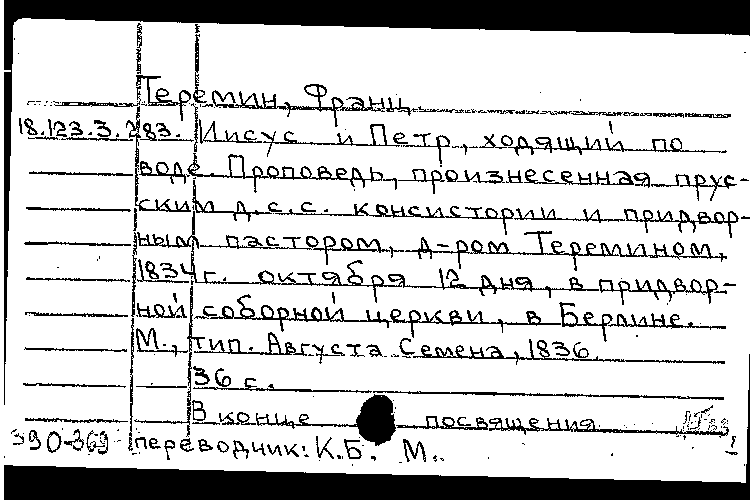 Теремин, Франц.
18.123.3.283. Иисус и Петр, ходящий по
воде. Проповедь, произнесенная прус-
ским д.с.с. консистории и придвор-
ным пастором, д-ром Теремином,
1834 г. октября 12 дня, в придвор-
ной соборной церкви, в Берлине.
М., тип. Августа Семена, 1836.
36 с.
В конце посвящения
390-369 переводчик: К.Б. М..